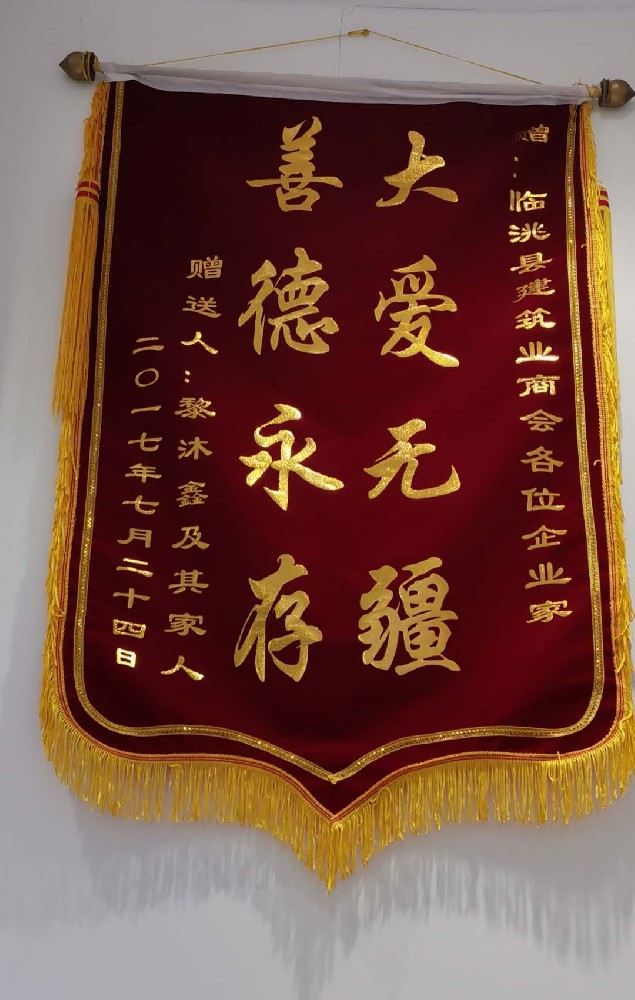 赠：临洮县建筑业商会各位企业家
大爱无疆
善德永存
赠送人：黎沐鑫及其家人
二〇一七年七月二十四日